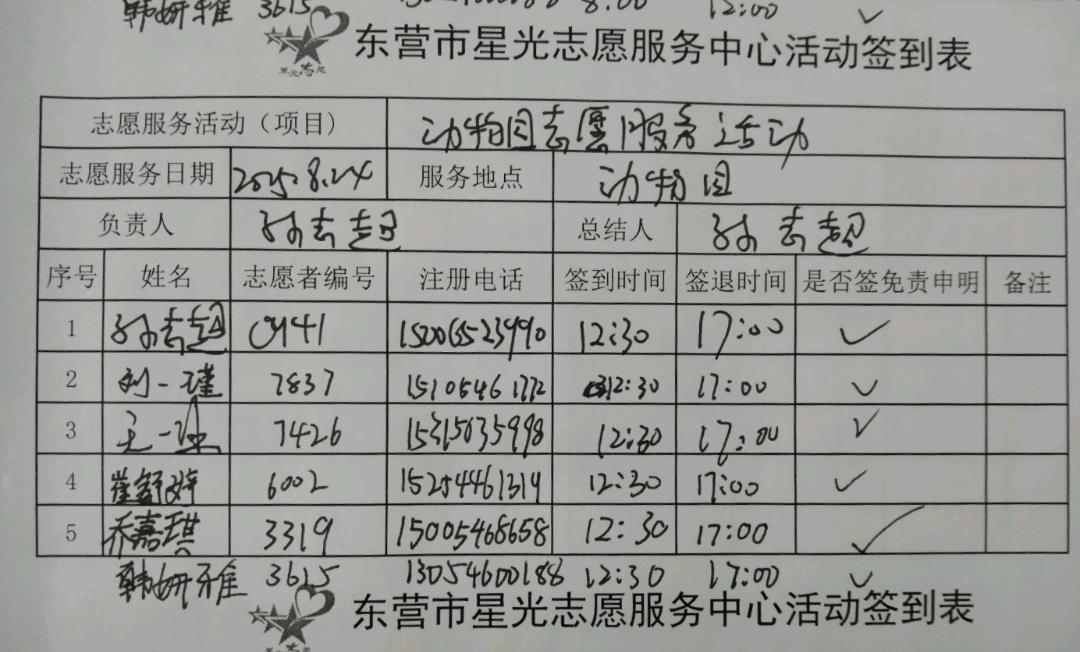 韩妍雅 3615 8:00 12:00 ✓
星光志愿
东营市星光志愿服务中心活动签到表
志愿服务活动（项目） 动物园志愿服务活动
志愿服务日期 2025.8.24 服务地点 动物园
负责人 孙志超 总结人 孙志超
序号 姓名 志愿者编号 注册电话 签到时间 签退时间 是否签免责申明 备注
1 孙志超 0941 15006523990 12:30 17:00 ✓
2 刘一瑾 7837 15105461772 12:30 17:00 ✓
3 王一 7426 15315035998 12:30 17:00 ✓
4 崔舒婷 6002 15254461319 12:30 17:00 ✓
5 乔嘉琪 3319 15005468658 12:30 17:00 ✓
韩妍雅 3615 13054600188 12:30 17:00 ✓
东营市星光志愿服务中心活动签到表